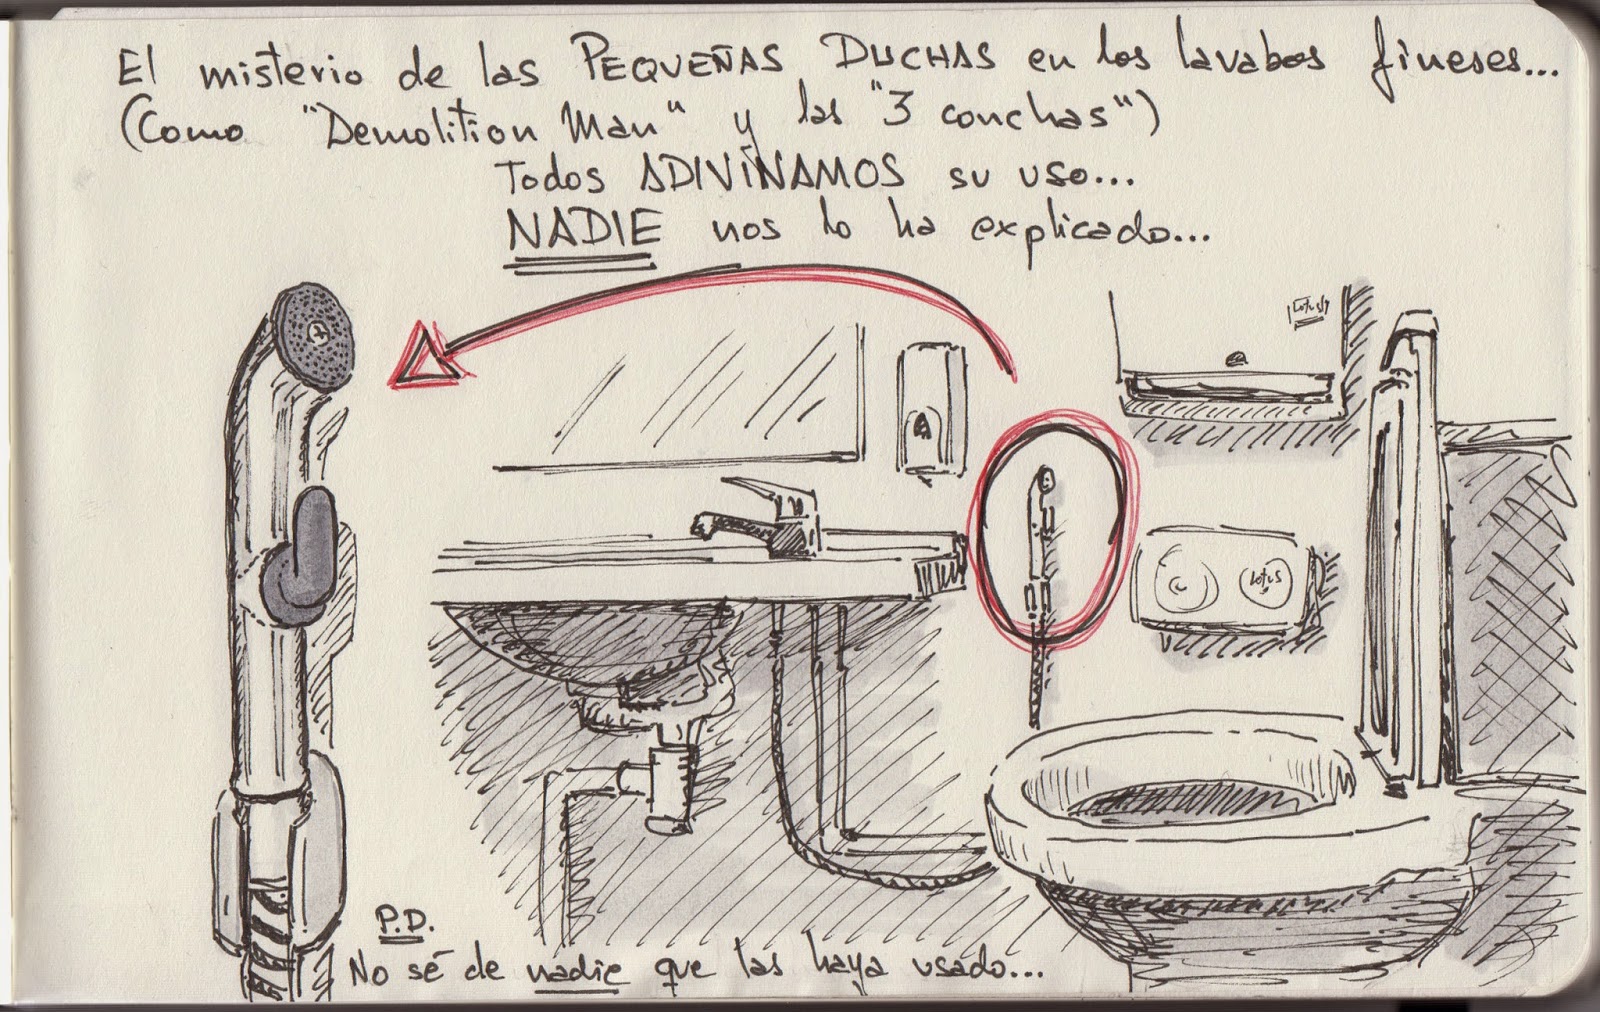 El misterio de las PEQUEÑAS DUCHAS en los lavabos fineses...
(Como "Demolition Man" y las "3 conchas")
Todos ADIVINAMOS su uso...
NADIE nos lo ha explicado...
Lotus
Lotus
P.D.
No sé de nadie que las haya usado...